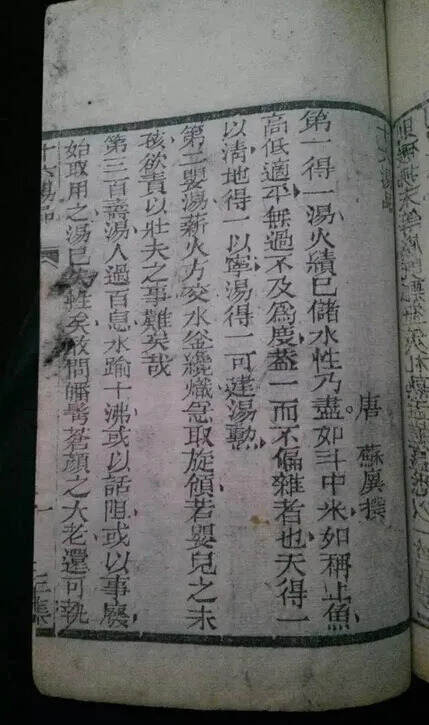 十六湯品
唐 蘇廙撰
第一得一湯火績已儲水性乃盡如斗中米如稱上魚
高低適平無過不及爲度蓋一而不偏雜者也天得一
以清地得一以寧湯得一可建湯勳
第二嬰湯薪火方交水釜纔熾急取旋傾若嬰兒之未
孩欲責以壯夫之事難矣哉
第三百壽湯人過百息水踰十沸或以話阻或以事廢
始取用之湯已失性矣敢問皤鬢蒼顏之大老還可執
十六湯品 一 集